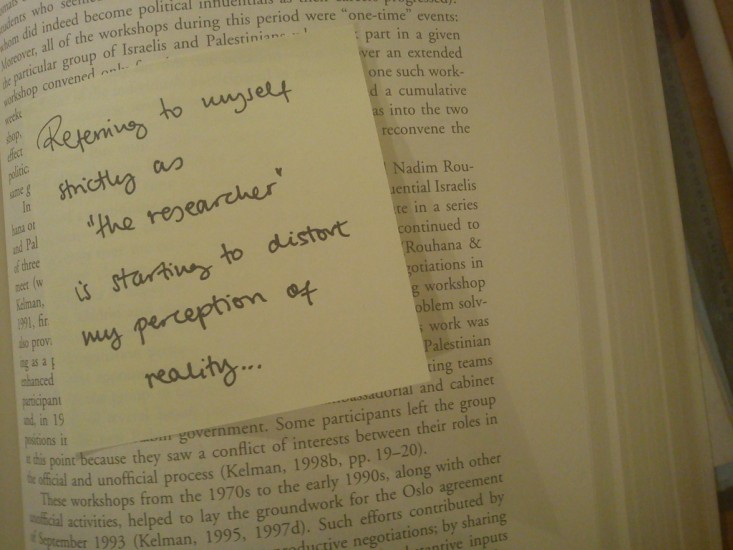 whom did indeed become political influentials as their careers progressed).
Moreover, all of the workshops during this period were "one-time" events:
the particular group of Israelis and Palestinians part in a given
workshop convened only ver an extended
one such work-
shop, d a cumulative
effect as into the two
politic reconvene the
same g
In Nadim Rou-
hana or uential Israelis
and Pal te in a series
of three continued to
meet (w Rouhana &
Kelman, gotiations in
1991, fir g workshop
also prov oblem solv-
ing as a p s work was
enhanced Palestinian
participant ting teams
and, in 19 bassadorial and cabinet
positions in government. Some participants left the group
at this point because they saw a conflict of interests between their roles in
the official and unofficial process (Kelman, 1998b, pp. 19–20).
These workshops from the 1970s to the early 1990s, along with other
unofficial activities, helped to lay the groundwork for the Oslo agreement
of September 1993 (Kelman, 1995, 1997d). Such efforts contributed by
productive negotiations; by sharing
inputs
Referring to myself
strictly as
"the researcher"
is starting to distort
my perception of
reality...